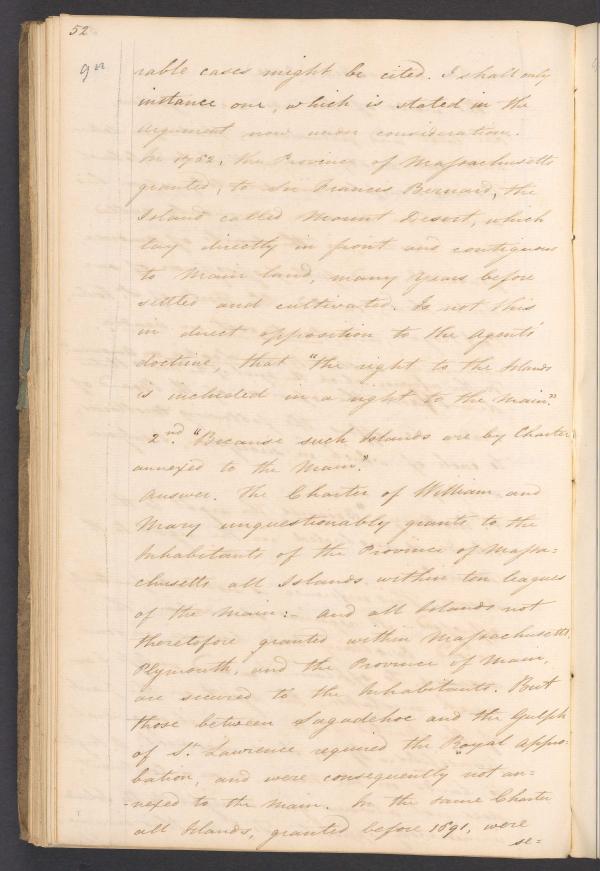 52
rable cases might be cited. I shall only
instance one, which is stated in the
argument now under consideration.
In 1762, the Province of Massachusetts
granted, to Sir Francis Bernard, the
Island called Mount Desert, which
lay directly in front and contiguous
to Main land, many years before
settled and cultivated. Is not this
in direct opposition to the Agents'
doctrine, that "the right to the Islands
is included in a right to the Main."
2nd. "Because such Islands are by Charter
annexed to the Main."
Answer. The Charter of William and
Mary unquestionably grants to the
Inhabitants of the Province of Massa=
chusetts all Islands within ten leagues
of the Main:- And all Islands not
theretofore granted within Massachusetts,
Plymouth, and the Province of Main,
are secured to the Inhabitants. But
those between Sagadehoc and the Gulph
of St. Lawrence required the Royal appro=
bation, and were consequently not an=
-nexed to the Main. In the same Charter
all Islands, granted before 1691, were
se=